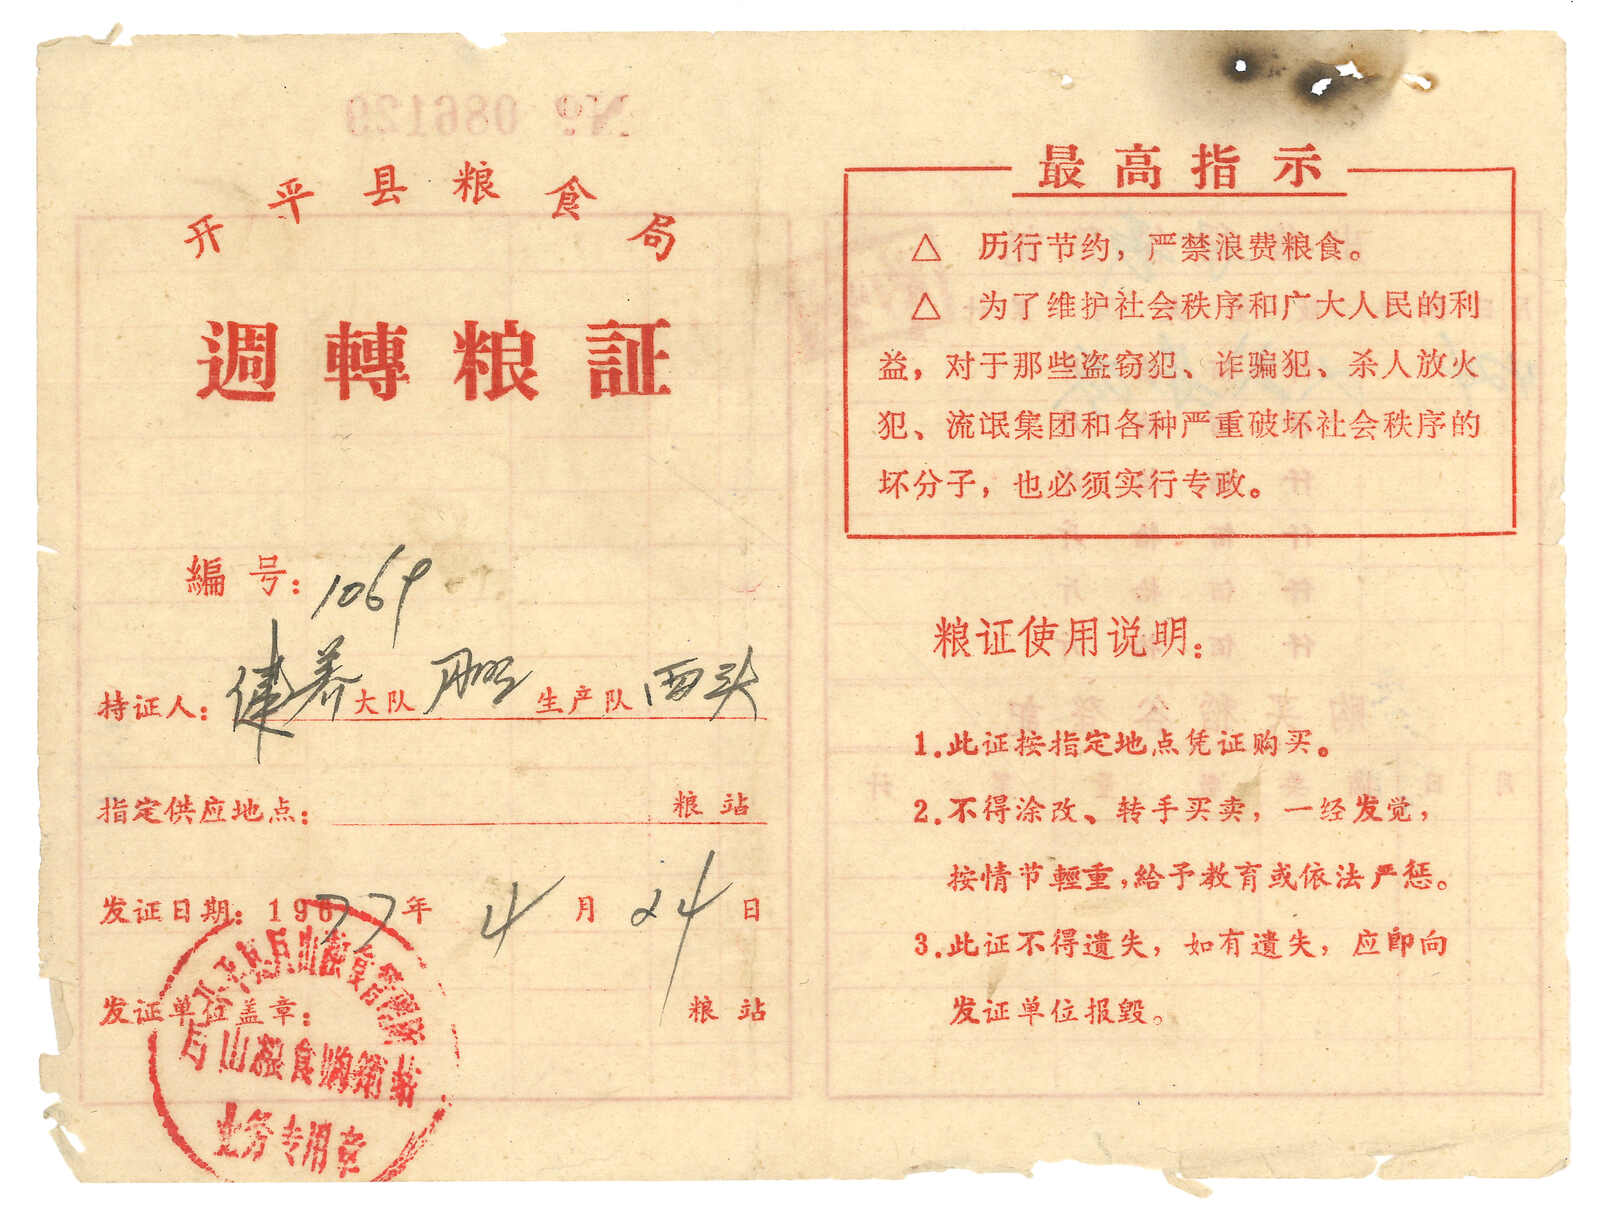 No 086129
开平县粮食局
週轉粮証
編号：1069
持证人：健养大队 生产队西头
指定供应地点： 粮站
发证日期：1977年4月24日
发证单位盖章： 粮站
山粮食购销站
业务专用章
最高指示
△ 历行节约，严禁浪费粮食。
△ 为了维护社会秩序和广大人民的利
益，对于那些盗窃犯、诈骗犯、杀人放火
犯、流氓集团和各种严重破坏社会秩序的
坏分子，也必须实行专政。
粮证使用说明：
1.此证按指定地点凭证购买。
2.不得涂改、转手买卖，一经发觉，
按情节輕重，給予教育或依法严惩。
3.此证不得遺失，如有遺失，应即向
发证单位报毁。